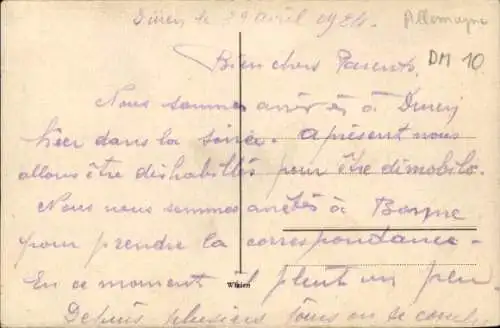 Düren le 29 avril 1924. Allemagne
Bien chers Parents. DM 10
Nous sommes arrivés à Duren
hier dans la soirée. Aprèsent nous
allons être déshabillés pour être démobilo.
Nous nous sommes arretés à Bonne
pour prendre la correspondance.
En ce moment il pleut un peu
Wixien
Depuis plusieurs jours on se couche